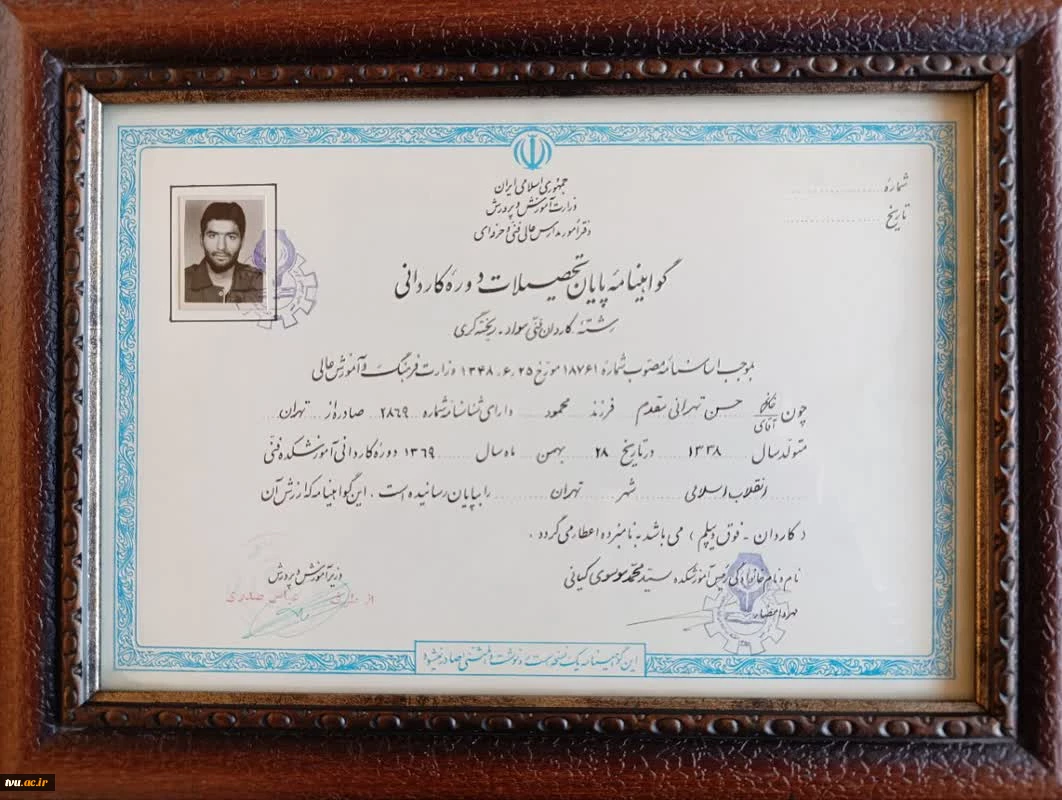 جمهوری اسلامی ایران
وزارت آموزش و پرورش
دفتر امور مدارس عالی فنی و حرفه‌ای
شماره
تاریخ
گواهینامه پایان تحصیلات دوره کاردانی
رشته کاردان فنی مواد - ریخته گری
بموجب اساسنامه مصوب شماره ۱۸۷۶۱ مورخ ۲۵ .۶ .۱۳۴۸ وزارت فرهنگ و آموزش عالی
چون خانم آقای حسن تهرانی مقدم فرزند محمود دارای شناسنامه شماره ۲۸۶۹ صادره از تهران
متولد سال ۱۳۳۸ در تاریخ ۲۸ بهمن ماه سال ۱۳۶۹ دوره کاردانی آموزشکده فنی
انقلاب اسلامی شهر تهران را بپایان رسانیده است ، این گواهینامه که ارزش آن
( کاردان - فوق دیپلم ) می باشد به نامبرده اعطا می گردد .
نام و نام خانوادگی رئیس آموزشکده سید محمد موسوی کیانی
مهر و امضاء
وزیر آموزش و پرورش
از طرف عباس صدری
این گواهینامه یک نسخه است و رونوشت یا المثنی صادر نمیشود
tvu.ac.ir